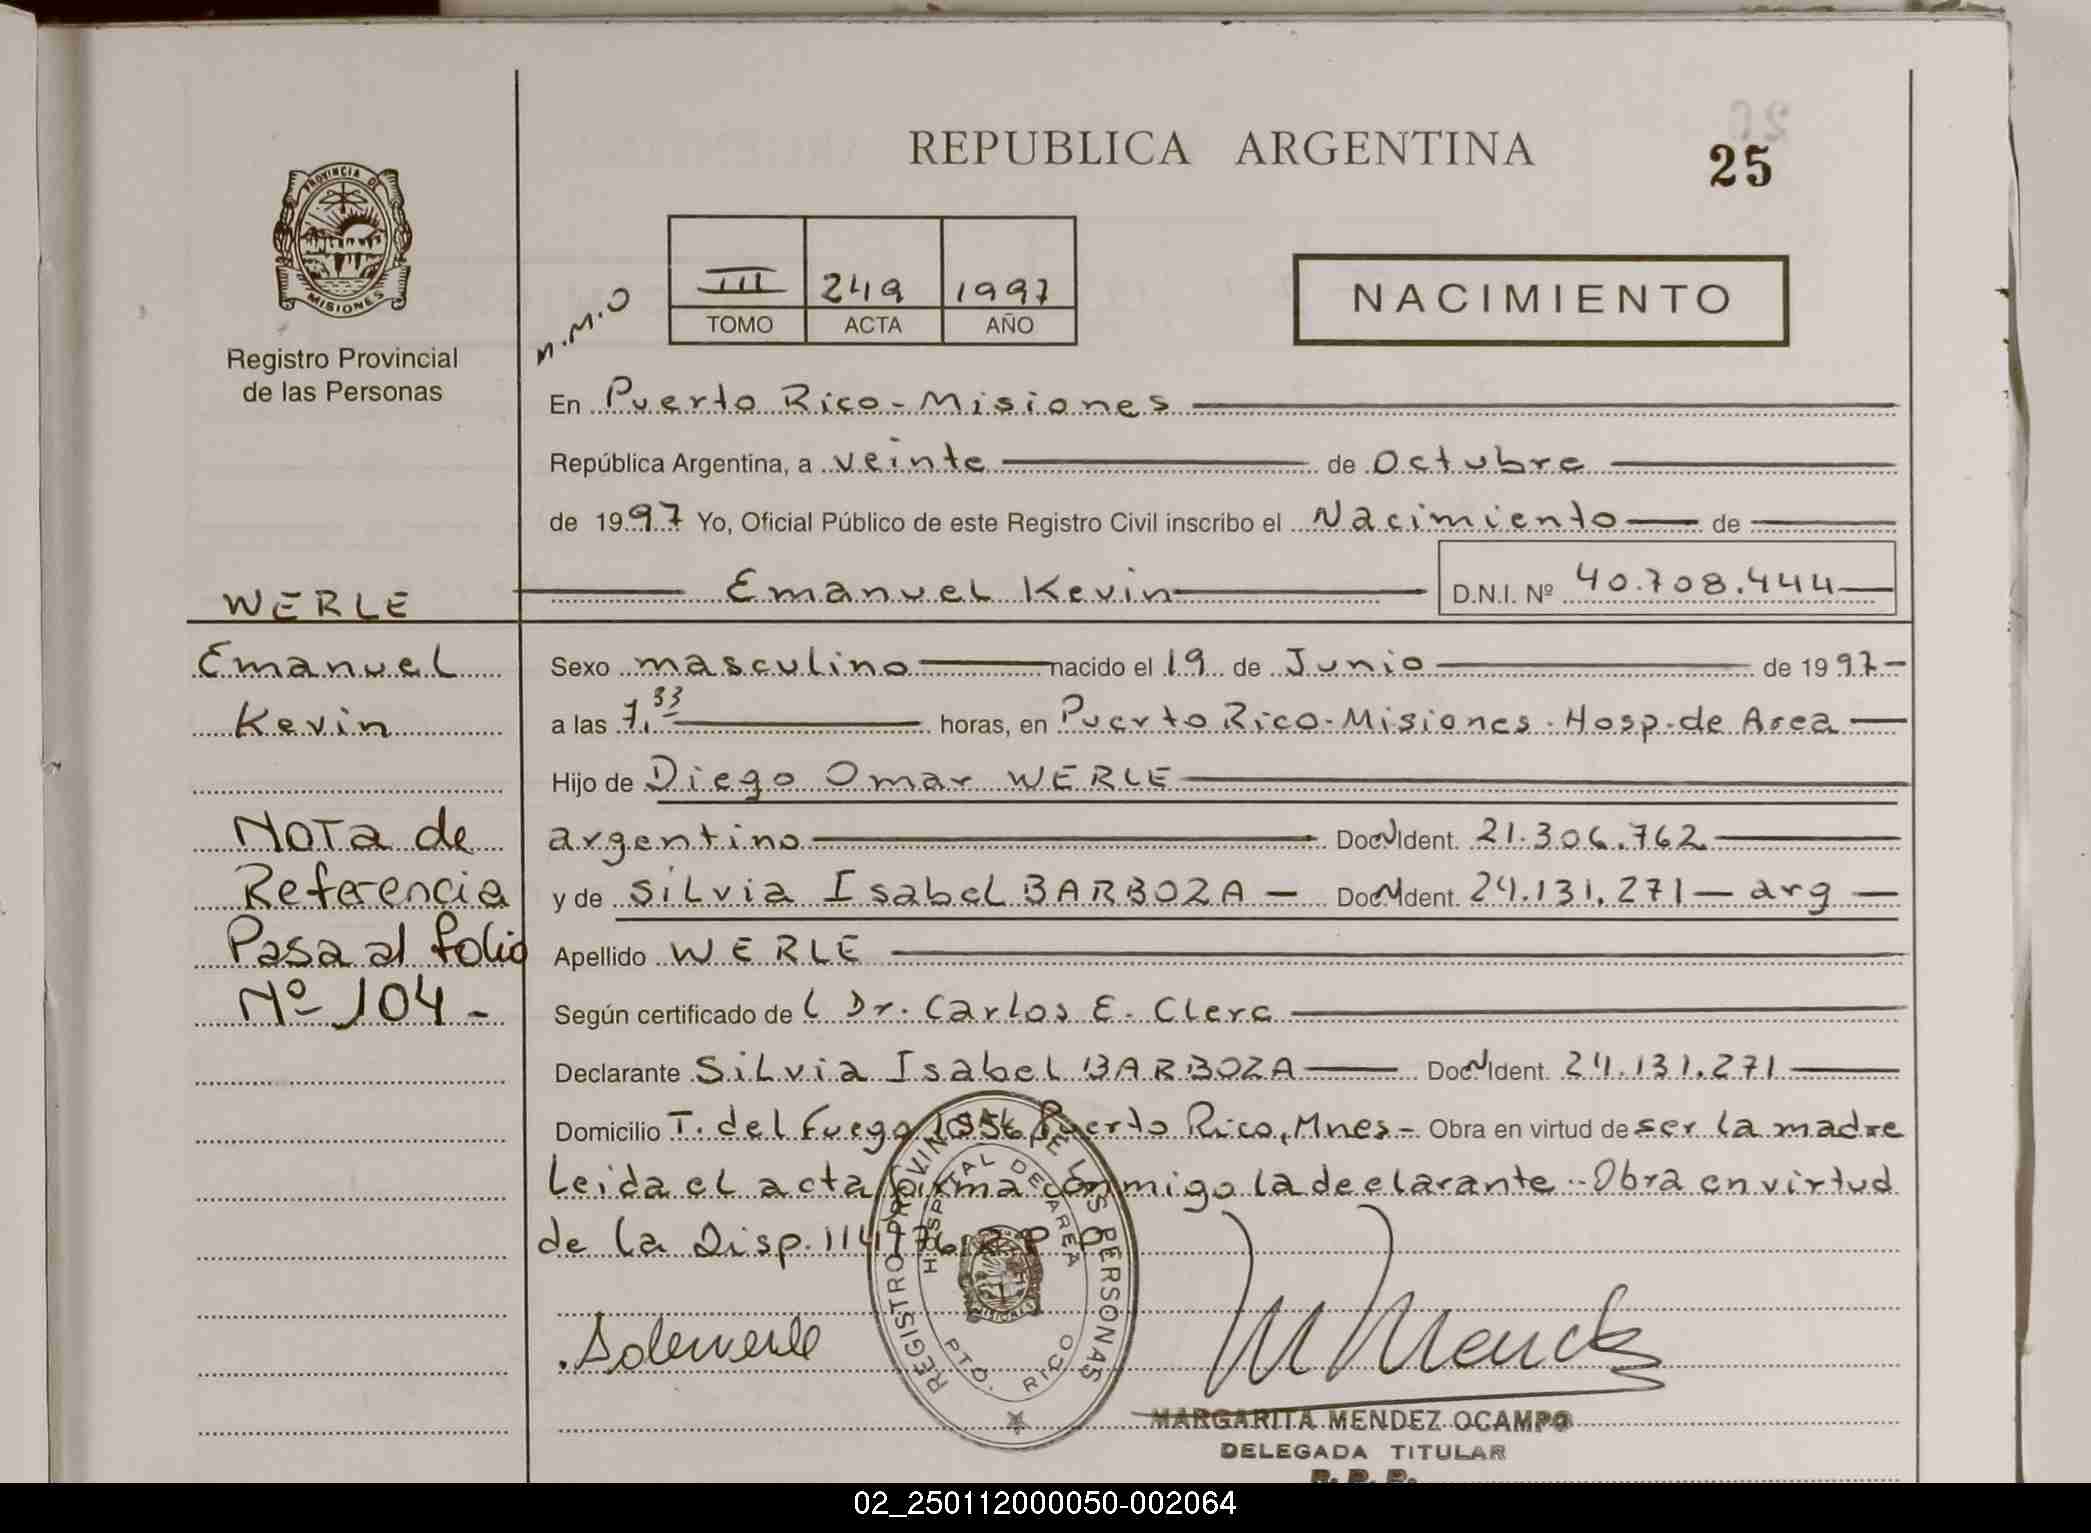 REPUBLICA ARGENTINA
25
PROVINCIA DE
MISIONES
Registro Provincial
de las Personas
III 249 1997
TOMO ACTA AÑO
M.M.O
NACIMIENTO
En Puerto Rico - Misiones
República Argentina, a veinte de Octubre
de 1997 Yo, Oficial Público de este Registro Civil inscribo el Nacimiento de
Emanuel Kevin D.N.I. Nº 40.708.444
WERLE
Emanuel
Kevin
Nota de
Referencia
Pasa al folio
Nº 104 -
Sexo masculino nacido el 19 de Junio de 1997
a las 7.33 horas, en Puerto Rico - Misiones - Hosp. de Area
Hijo de Diego Omar WERLE
argentino Doc N Ident. 21.306.762
y de Silvia Isabel BARBOZA - Doc N Ident. 24.131.271 - arg -
Apellido WERLE
Según certificado de l Dr. Carlos E. Clerc
Declarante Silvia Isabel BARBOZA Doc N Ident. 24.131.271
Domicilio T. del Fuego 1056 Puerto Rico, Mnes - Obra en virtud de ser la madre
Leida el acta firma conmigo la declarante - Obra en virtud
de la Disp. 114/76 R P P
REGISTRO PROVINCIAL DE LAS PERSONAS
HOSPITAL DE AREA
PTO. RICO
MISIONES
MARGARITA MENDEZ OCAMPO
DELEGADA TITULAR
R. P. P.
02_250112000050-002064